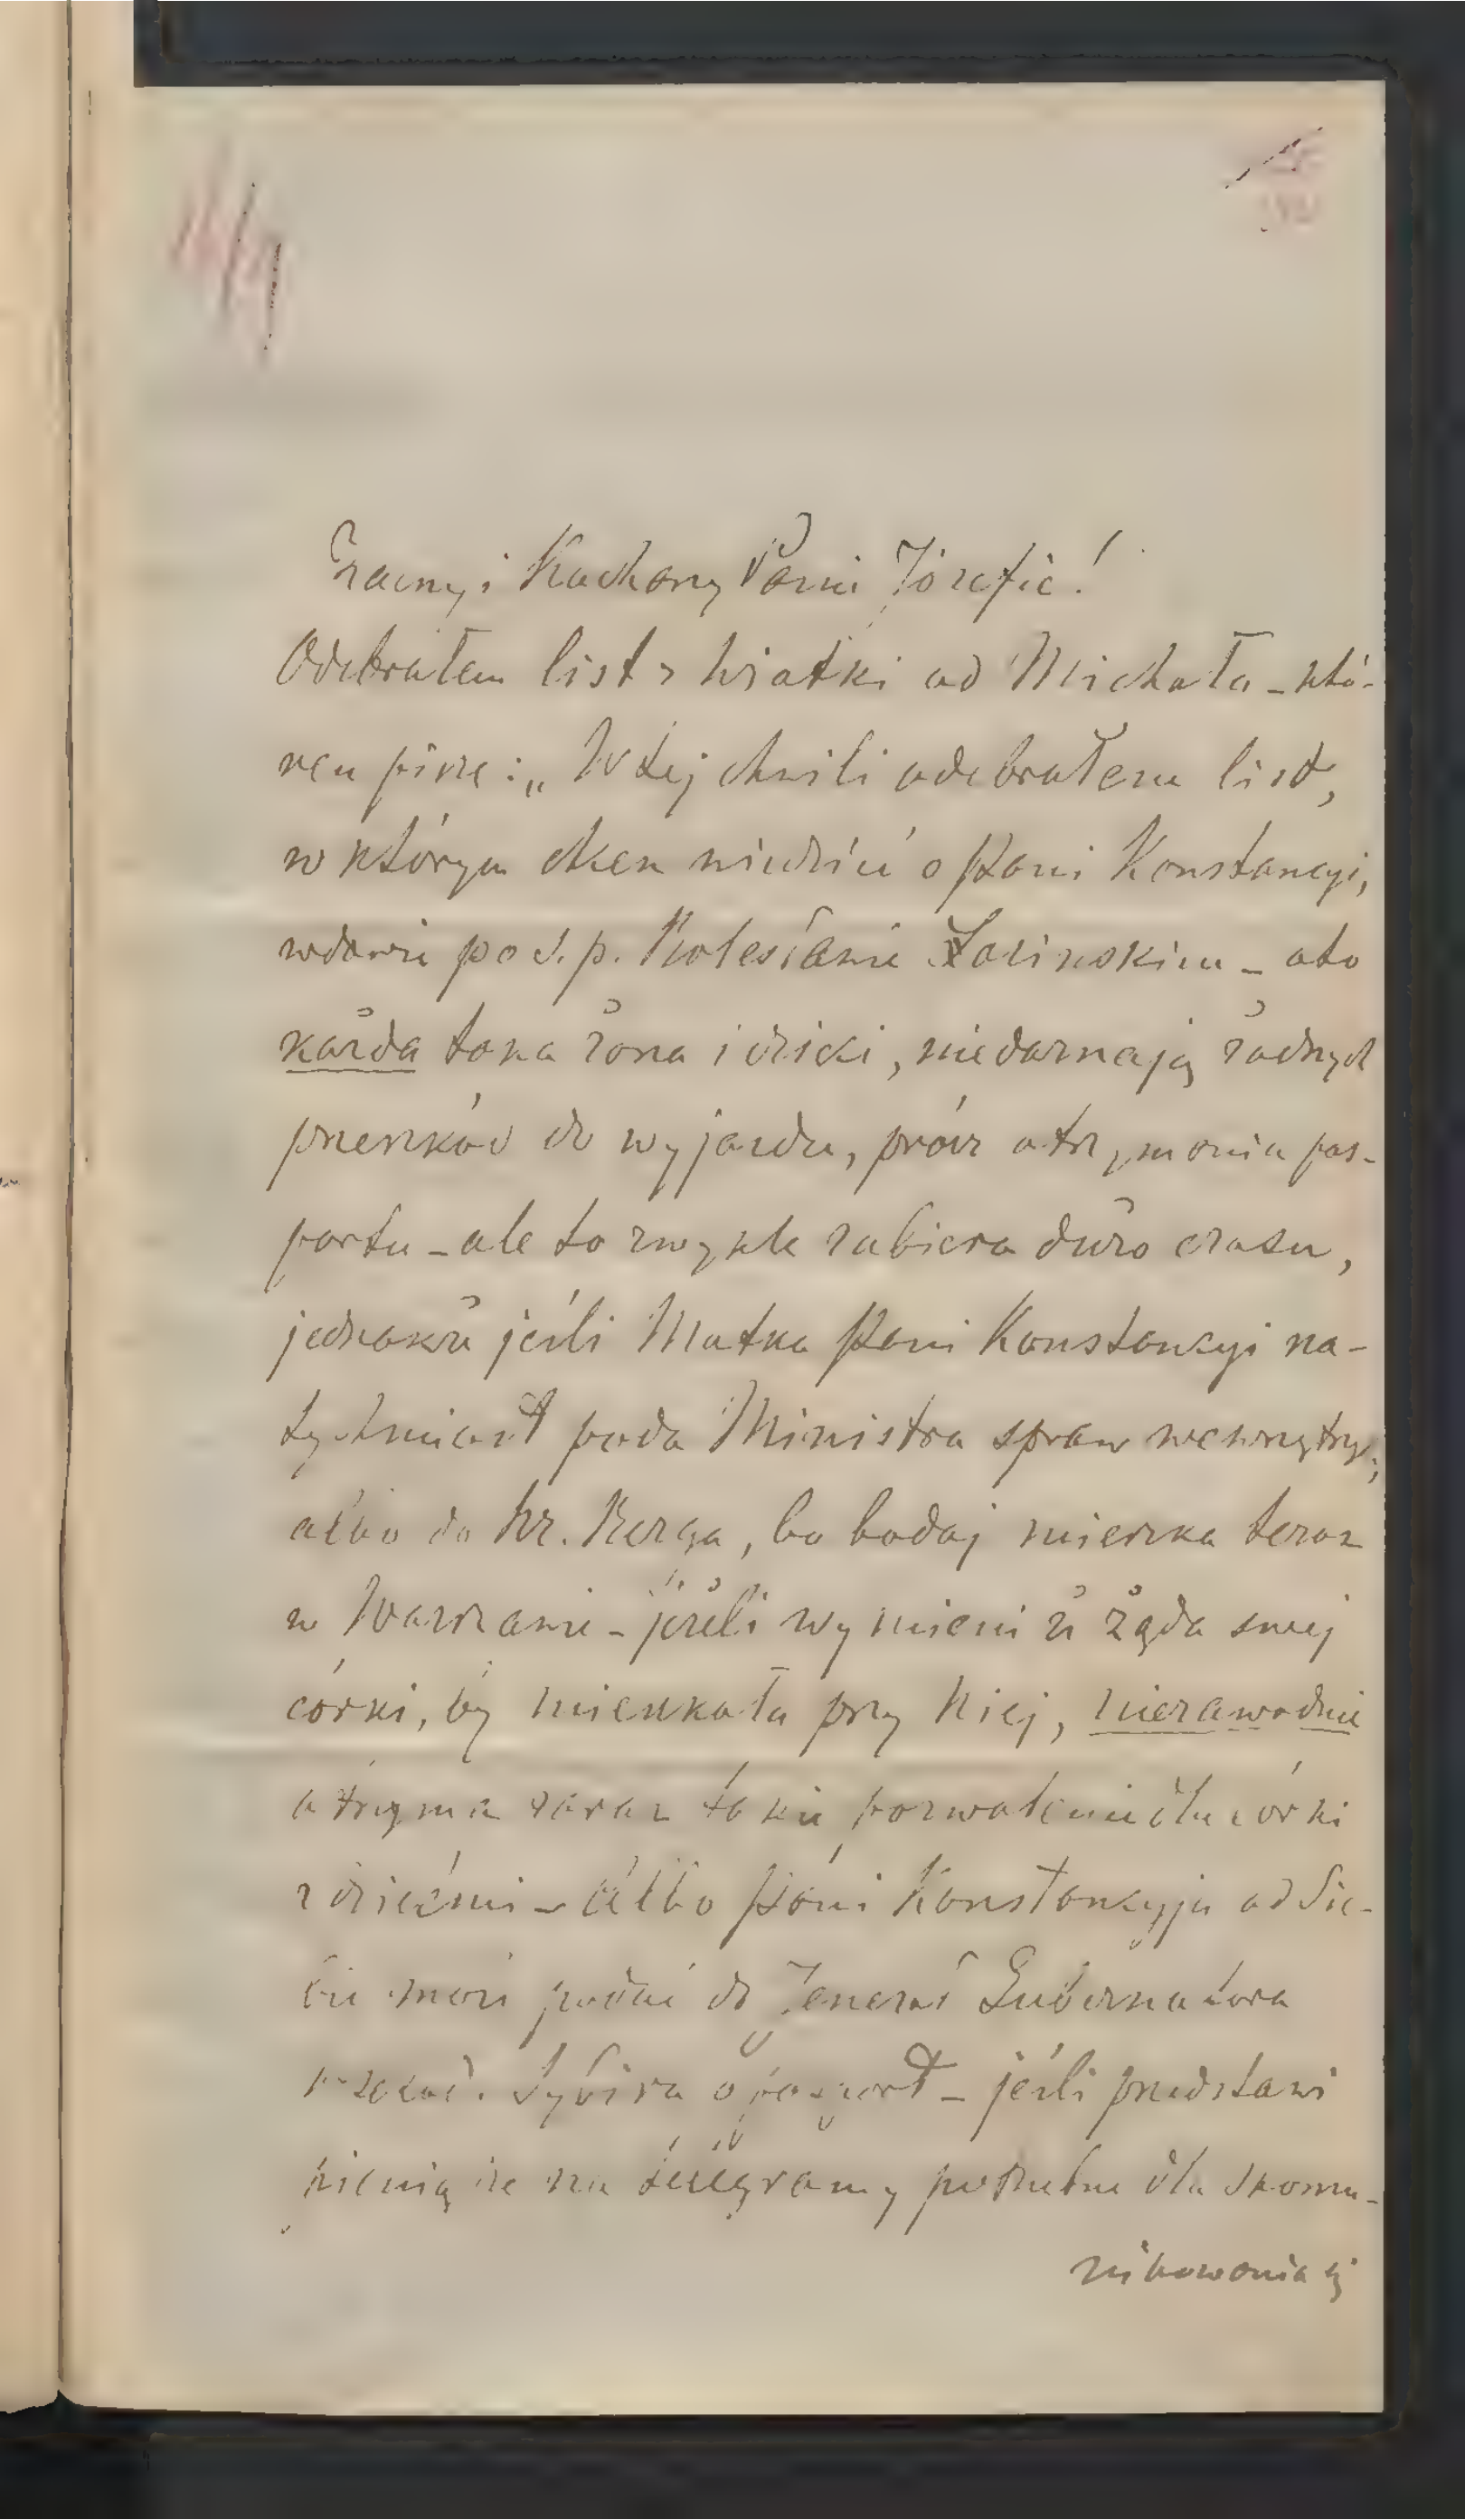 Zacny i Kochany Panie Józefie!
Odebrałem list z Wiatki od Michała – któ-
ren pisze: „W tej chwili odebrałem list,
w którym chcesz wiedzieć o Pani Konstancyi,
wdowie po ś. p. Bolesławie – oto
każda taka żona i dzieci, niedoznają żadnych
przeszkód do wyjazdu, prócz otrzymania pas-
portu – ale to zwykle zabiera dużo czasu,
jednakże jeśli Matka Pani Konstancyi na-
tychmiast poda Ministra spraw wewnętrz;
albo do hr. Berga, bo bodaj mieszka teraz
w Warszawie – jeżeli wymieni że żąda swej
córki, by mieszkała przy Niej, niezawodnie
otrzyma zaraz takie pozwolenie dla córki
z dziećmi – albo Pani Konstancyja od Sie-
bie może podać do Jenerał Gubernatora
Sybiru o pasport – jeśli przedstawi
pieniądze na telegramy potrzebne dla skomu-
nikowania się